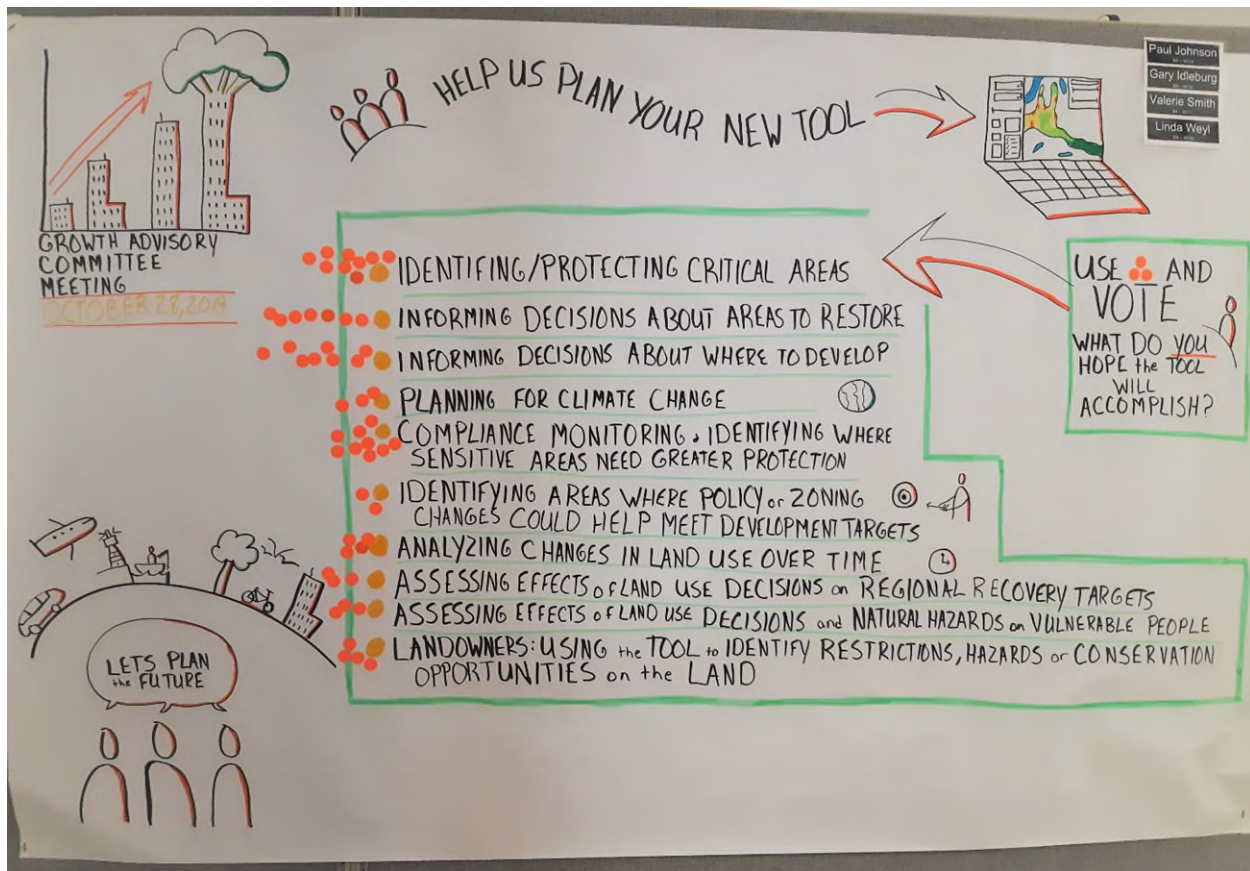 HELP US PLAN YOUR NEW TOOL
Paul Johnson
Gary Idleburg
Valerie Smith
Linda Weyl
GROWTH ADVISORY
COMMITTEE
MEETING
OCTOBER 28, 2019
USE AND
VOTE
WHAT DO YOU
HOPE the TOOL
WILL
ACCOMPLISH?
IDENTIFING/PROTECTING CRITICAL AREAS
INFORMING DECISIONS ABOUT AREAS TO RESTORE
INFORMING DECISIONS ABOUT WHERE TO DEVELOP
PLANNING FOR CLIMATE CHANGE
COMPLIANCE MONITORING & IDENTIFYING WHERE
SENSITIVE AREAS NEED GREATER PROTECTION
IDENTIFYING AREAS WHERE POLICY or ZONING
CHANGES COULD HELP MEET DEVELOPMENT TARGETS
ANALYZING CHANGES IN LAND USE OVER TIME
ASSESSING EFFECTS of LAND USE DECISIONS on REGIONAL RECOVERY TARGETS
ASSESSING EFFECTS of LAND USE DECISIONS and NATURAL HAZARDS on VULNERABLE PEOPLE
LANDOWNERS: USING the TOOL to IDENTIFY RESTRICTIONS, HAZARDS or CONSERVATION
OPPORTUNITIES on the LAND
LETS PLAN
the FUTURE